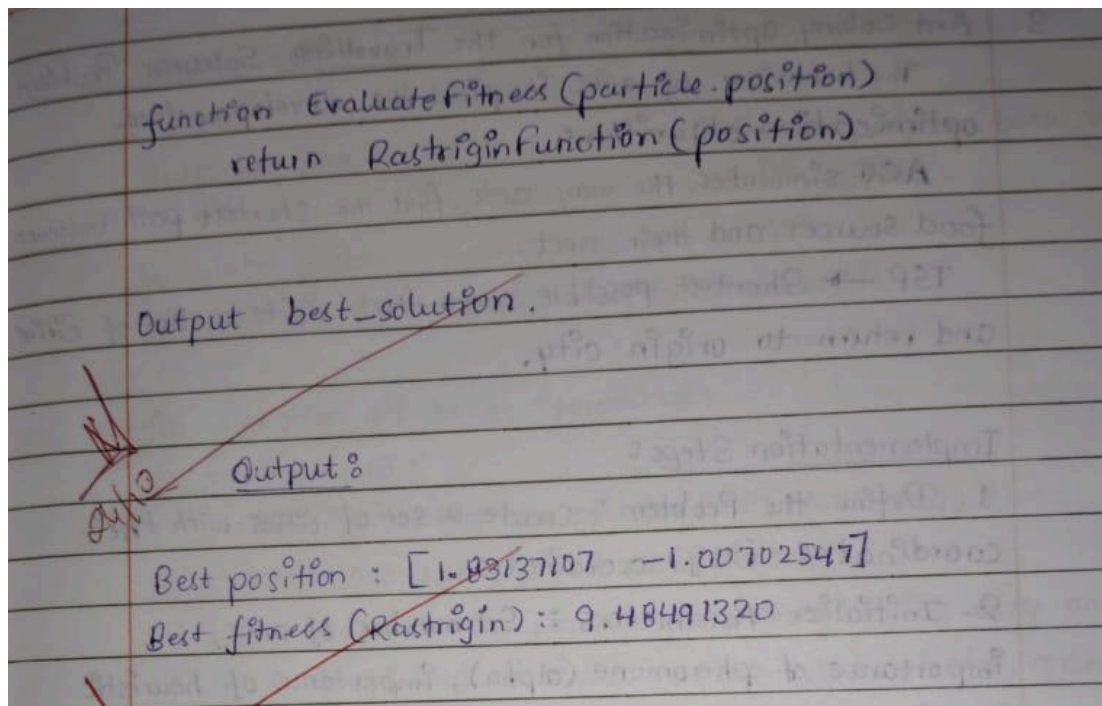 function Evaluatefitness (particle.position)
return Rastriginfunction (position)
Output best_solution.
Output :
Best position : [1.83137107 -1.00702547]
Best fitness (Rastrigin) : 9.48491320